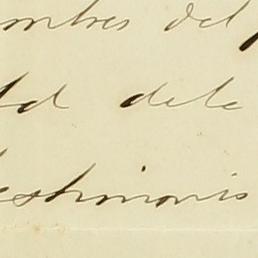 mbres del
ld dela
estimonio